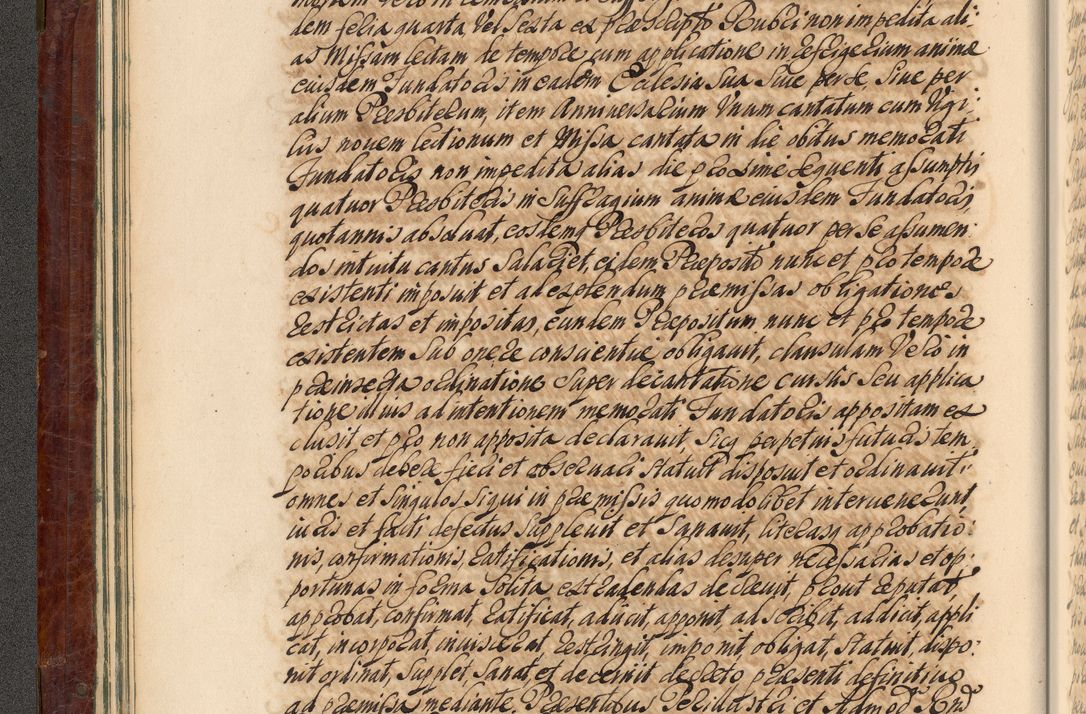 dem feria quarta vel sexta ex præscripto Rubri non impedita ali:
as Missam lectam de tempore cum applicatione in refrigerium animæ
eiusdem Fundatoris in eadem Ecclesia sua siue per se, siue per
alium Præsbiterum, item Anniversarium unum cantatum cum Vigi:
liis novem lectionum et Missa cantata in die obitus memorati
Fundatoris non impedita alias die proxime sequenti assumptis
quatuor Præsbiteris in suffragium animæ eiusdem Fundatoris,
quotannis absoluat, eosdemq Præsbiteros quatuor per se assumen:
dos intuitu cantus salariet, eidem Præposito nunc et pro tempore
existenti imposuit et ad explendum præmissas obligationes
restrictas et impositas, eundem Præpositum nunc et pro tempore
existentem sub onere conscientiæ obligauit, clausulam vero in
præinserta ordinatione super decantatione cursus seu applica
tione alius ad intentionem memorati Fundatoris appositam ex
clusit et pro non apposita declarauit, sicq perpetuis futuris tem
poribus debere fieri et obseruari statuit disposuit et ordinauit.
omnes et singulos siqui in præmissis quomodolibet intervenerunt,
iuris et facti defectus suppleuit et sanauit, literasq approbatio:
nis, confirmationis, ratificationis, et alias desuper necessarias et op:
portunas in forma solita extradendas decreuit, prout reputat,
approbat, confirmat, ratificat, adiicit, apponit adscribit, addicit, appli
cat, incorporat, inuiscerat restringit, imponit obligat, statuit, dispo:
nit ordinat, supplet sanat et decernit decreto præsenti definitiuo
ad præmissa mediante. Præsentibus Perillustri et Admod Rnd